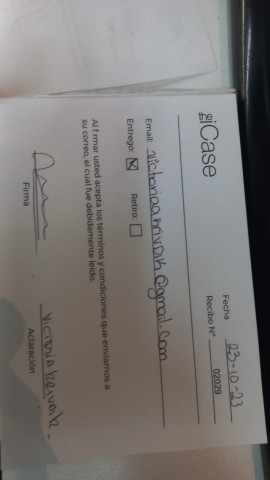 iCase
Fecha 23-10-23
Recibo N° 02029
Email: @gmail.com
Entrego: ☒ Retiro: ☐
Al firmar usted acepta los términos y condiciones que enviamos a
su correo, el cual fue debidamente leído.
Firma
Victoria
Aclaración